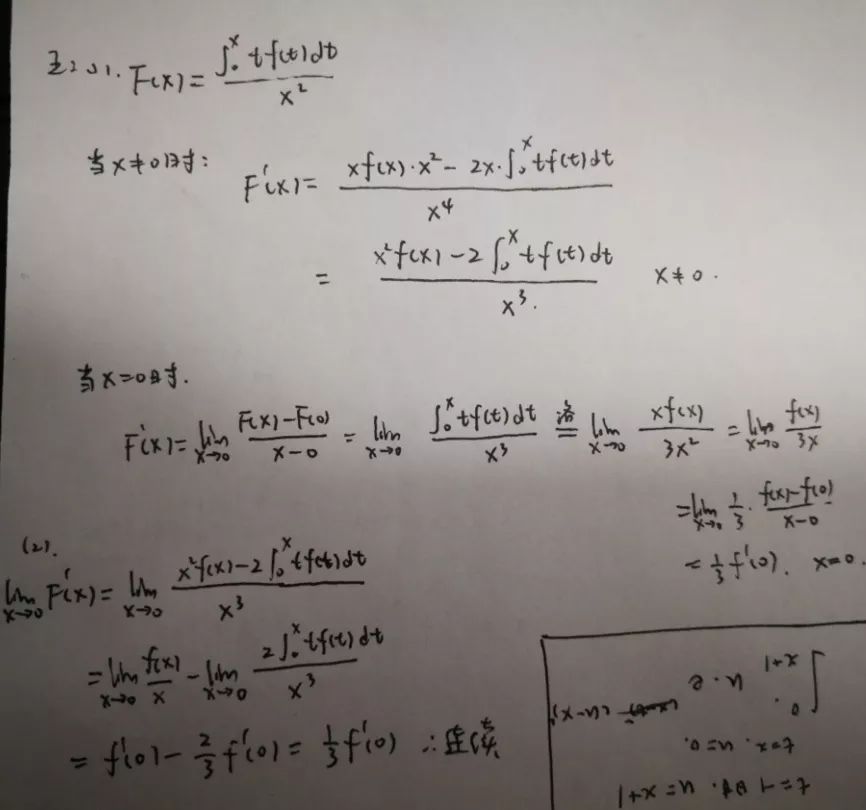 F(x) = ∫₀ˣ t f(t) dt / x²
当 x≠0 时:
F'(x) = (x f(x)·x² - 2x·∫₀ˣ t f(t) dt) / x⁴
= (x² f(x) - 2∫₀ˣ t f(t) dt) / x³. x≠0.
当 x=0 时.
F'(x) = lim x→0 (F(x)-F(0)) / (x-0) = lim x→0 ∫₀ˣ t f(t) dt / x³ 洛= lim x→0 x f(x) / 3x² = lim x→0 f(x) / 3x
= lim x→0 1/3 · (f(x)-f(0)) / (x-0)
= 1/3 f'(0). x=0.
(2).
lim x→0 F'(x) = lim x→0 (x² f(x) - 2∫₀ˣ t f(t) dt) / x³
= lim x→0 f(x)/x - lim x→0 2∫₀ˣ t f(t) dt / x³
= f'(0) - 2/3 f'(0) = 1/3 f'(0) ∴连续
t=1 时. u=x+1
t=x. u=0.
∫₀ˣ⁺¹ u·e